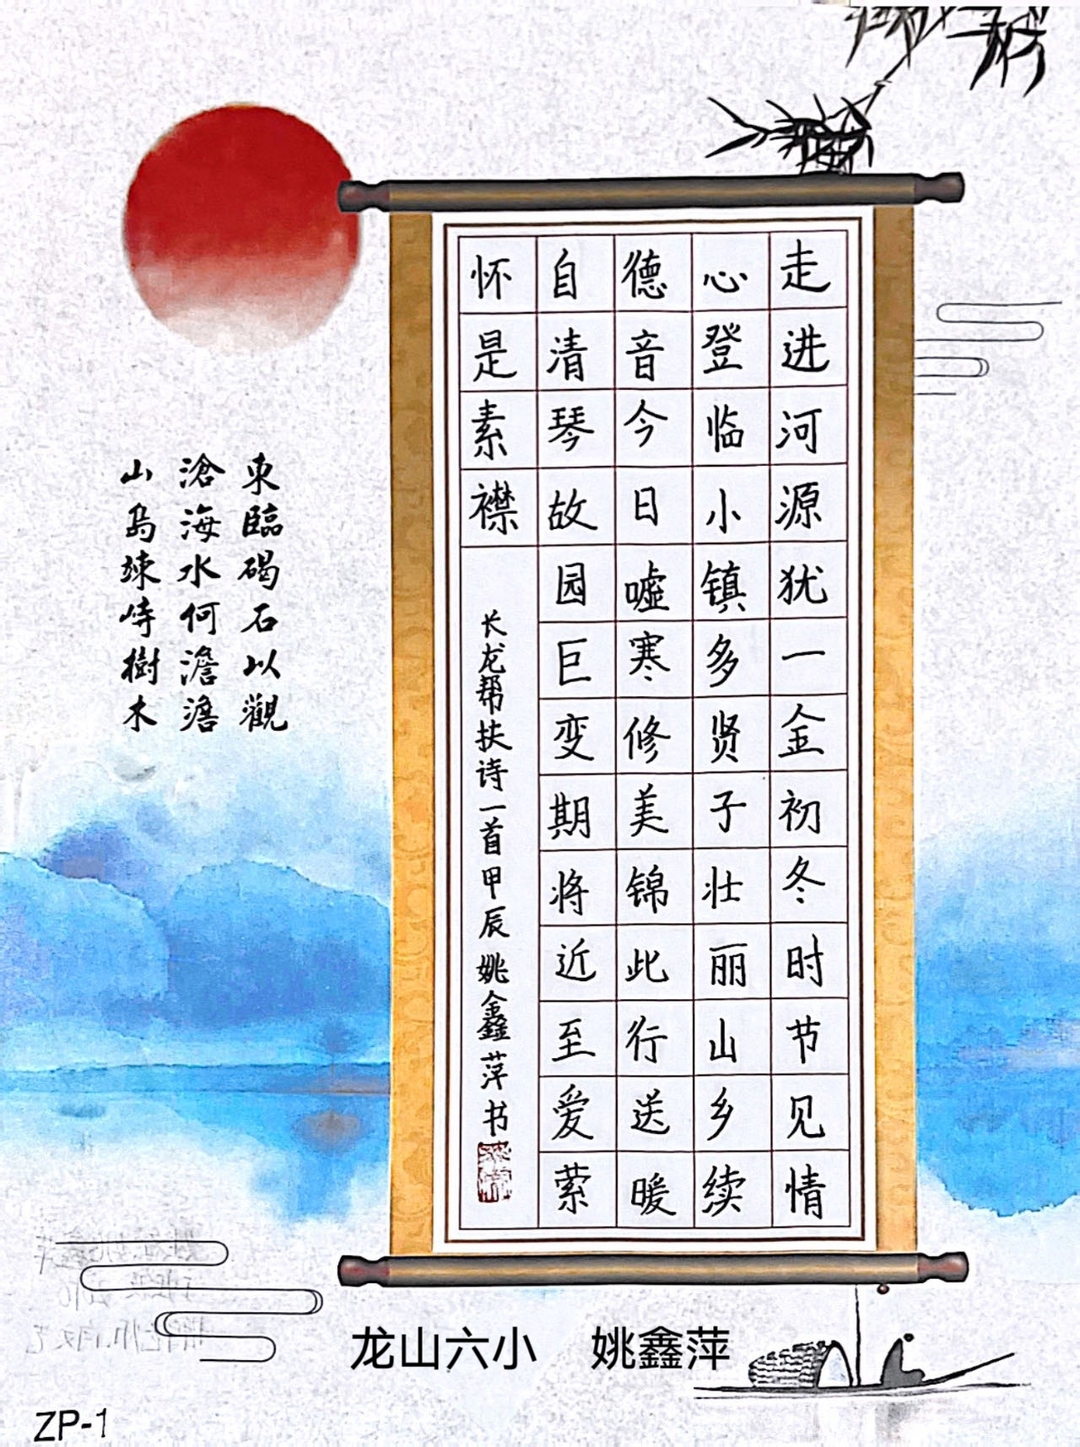 走进河源犹一金初冬时节见情
心登临小镇多贤子壮丽山乡续
德音今日嘘寒修美锦此行送暖
自清琴故园巨变期将近至爱萦
怀是素襟
长龙帮扶诗一首甲辰姚鑫萍书
東臨碣石以觀
滄海水何澹澹
山島竦峙樹木
龙山六小 姚鑫萍
ZP-1